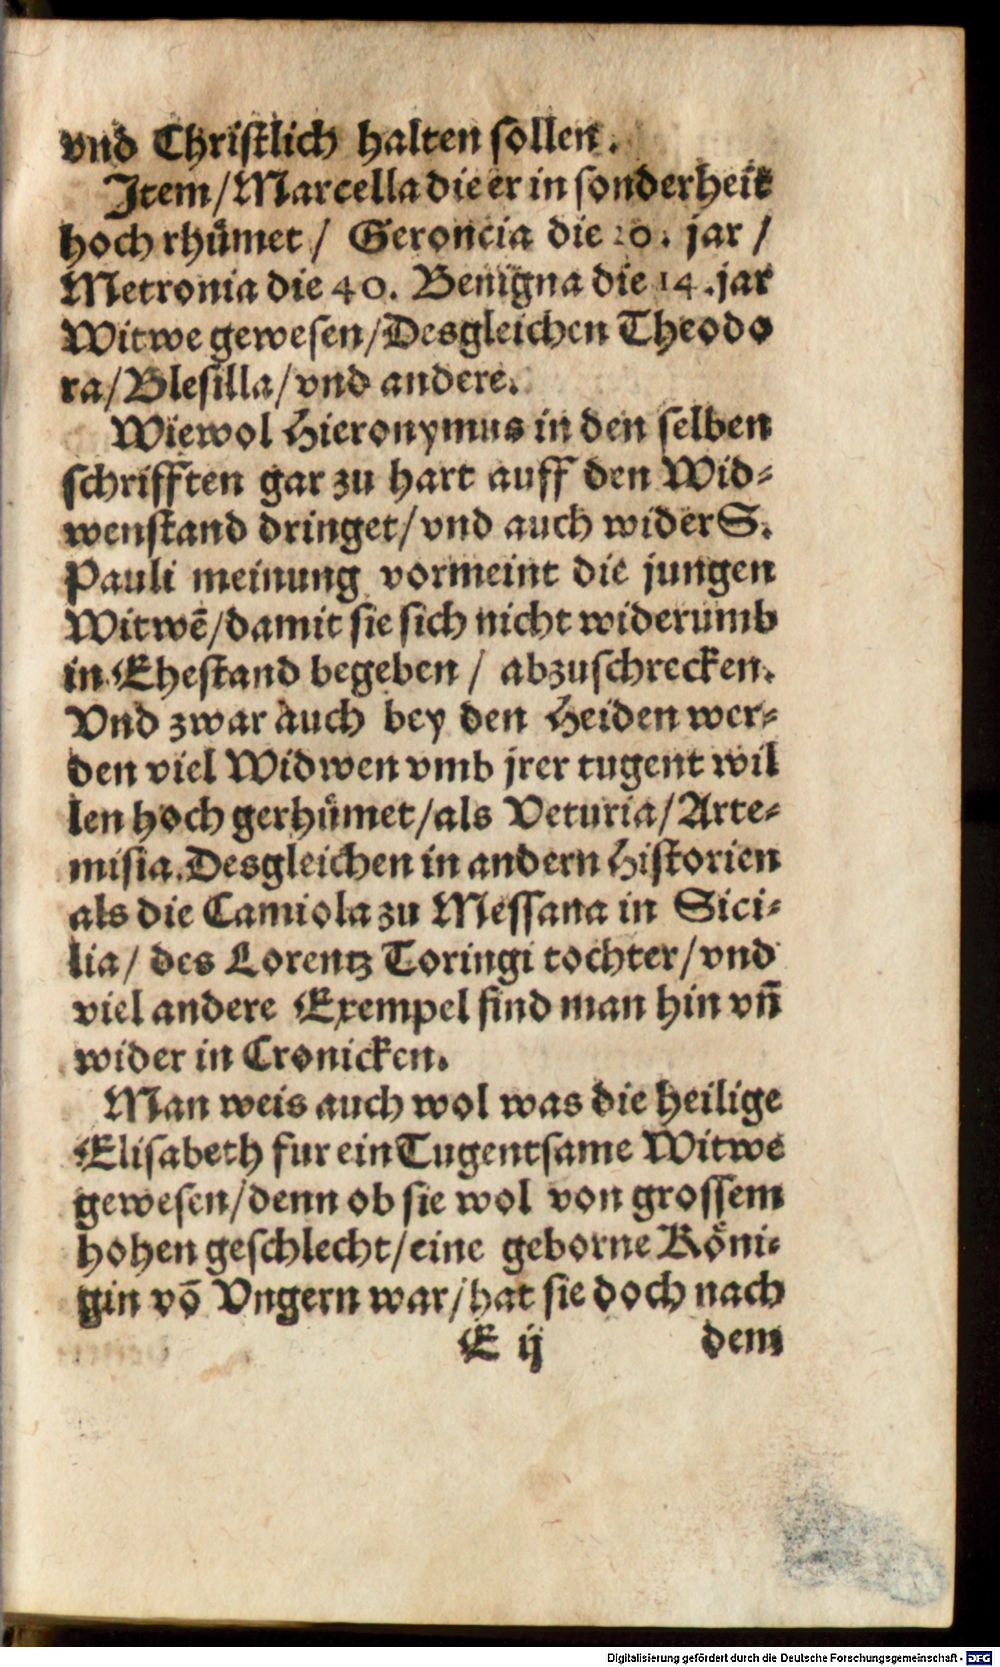 vnd Christlich halten sollen.
Item/ Marcella die er in sonderheit
hoch rhuͤmet/ Geroncia die 20. jar/
Metronia die 40. Benigna die 14. jar
Witwe gewesen/ Desgleichen Theodo
ra/ Blesilla/ vnd andere.
Wiewol Hieronymus in den selben
schrifften gar zu hart auff den Wid-
wenstand dringet/ vnd auch wider S.
Pauli meinung vormeint die jungen
Witwē/ damit sie sich nicht widerumb
in Ehestand begeben/ abzuschrecken.
Vnd zwar auch bey den Heiden wer-
den viel Widwen vmb jrer tugent wil
len hoch gerhuͤmet/ als Veturia/ Arte-
misia. Desgleichen in andern Historien
als die Camiola zu Messana in Sici-
lia/ des Lorentz Toringi tochter/ vnd
viel andere Exempel find man hin vn̄
wider in Cronicken.
Man weis auch wol was die heilige
Elisabeth fur ein Tugentsame Witwe
gewesen/ denn ob sie wol von grossem
hohen geschlecht/ eine geborne Koͤni-
gin vō Vngern war/ hat sie doch nach
E ij dem
Digitalisierung gefördert durch die Deutsche Forschungsgemeinschaft - DFG